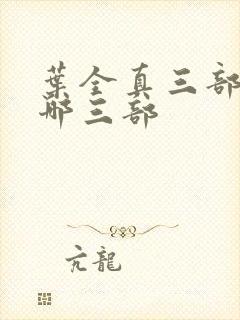 葉全真三部
哪三部
亢龍